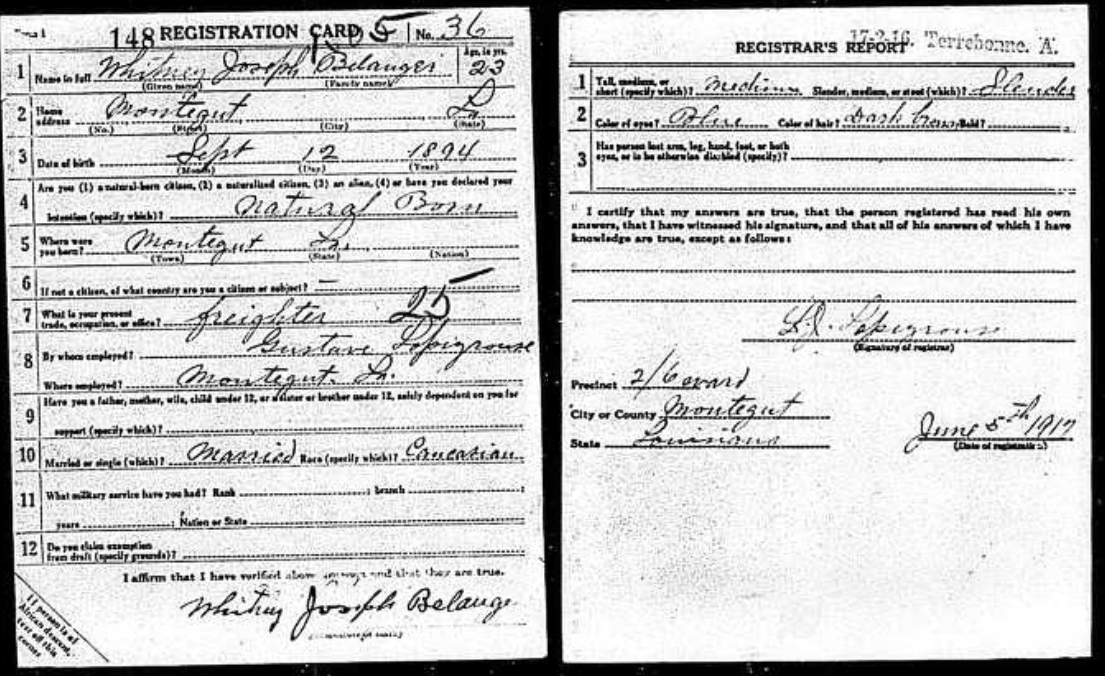 148 REGISTRATION CARD 105 No. 36
1 Name in full Whitney Joseph Belanger Age, in yrs. 23
(Given name) (Family name)
2 Home address Montegut La
(No.) (Street) (City) (State)
3 Date of birth Sept 12 1894
(Month) (Day) (Year)
4 Are you (1) a natural-born citizen, (2) a naturalized citizen, (3) an alien, (4) or have you declared your
intention (specify which)? natural Born
5 Where were you born? Montegut La.
(Town) (State) (Nation)
6 If not a citizen, of what country are you a citizen or subject? —
7 What is your present trade, occupation, or office? freighter 25
8 By whom employed? Gustave Lapeyrouse
Where employed? Montegut. La.
9 Have you a father, mother, wife, child under 12, or a sister or brother under 12, solely dependent on you for
support (specify which)?
10 Married or single (which)? Married Race (specify which)? Caucasian
11 What military service have you had? Rank ; branch ;
years ; Nation or State
12 Do you claim exemption from draft (specify grounds)?
I affirm that I have verified above answers and that they are true.
Whitney Joseph Belanger
If person is of
African descent,
tear off this
corner.
17-2-16. Terrebonne. A.
REGISTRAR'S REPORT
1 Tall, medium, or short (specify which)? Medium Slender, medium, or stout (which)? Slender
2 Color of eyes? Blue Color of hair? Dark brown Bald?
3 Has person lost arm, leg, hand, foot, or both
eyes, or is he otherwise disabled (specify)?
I certify that my answers are true, that the person registered has read his own
answers, that I have witnessed his signature, and that all of his answers of which I have
knowledge are true, except as follows:
L.J. Lapeyrouse
(Signature of registrar)
Precinct 2/6 ward
City or County Montegut
State Louisiana
June 5th 1917
(Date of registration)